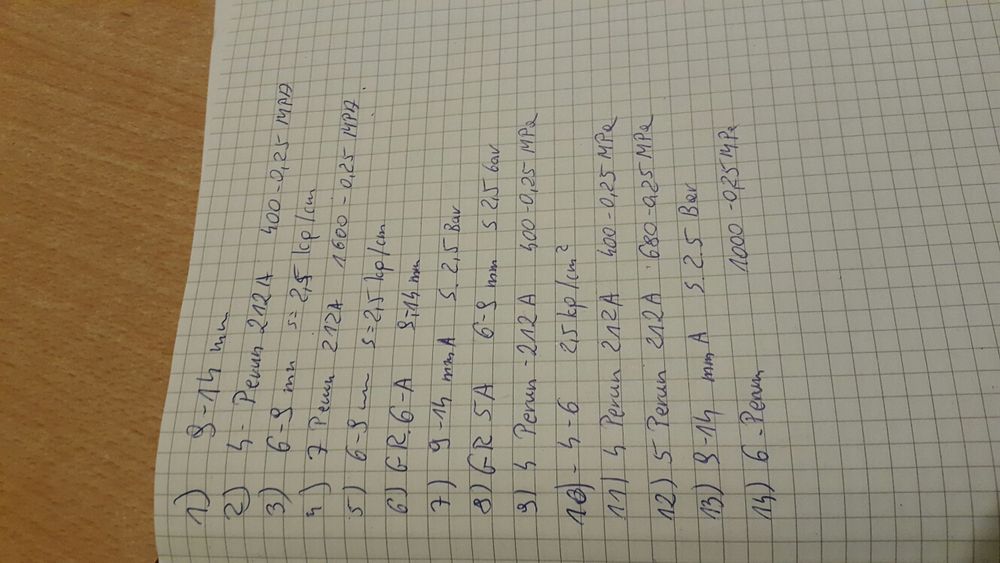 1) 9-14 mm
2) 4- Perun 212A 400-0,25 MPA
3) 6-9 mm s=2,5 kp/cm
4) 7 Perun 212A 1600-0,25 MPA.
5) 6-9 mm s=2,5 kp/cm
6) GR.6-A 9-14 mm
7) 9-14 mm A S. 2,5 Bar
8) GR 5A 6-9 mm S 2,5 bar
9) 4 Perun -212A 400-0,25 MPa
10) - 4-6 2,5 kp/cm²
11) 4 Perun 212A 400-0,25 MPa
12) 5 Perun 212A 680-0,25 MPa
13) 9-14 mm A S. 2.5 Bar
14) 6-Perun 1000-0,25 MPa